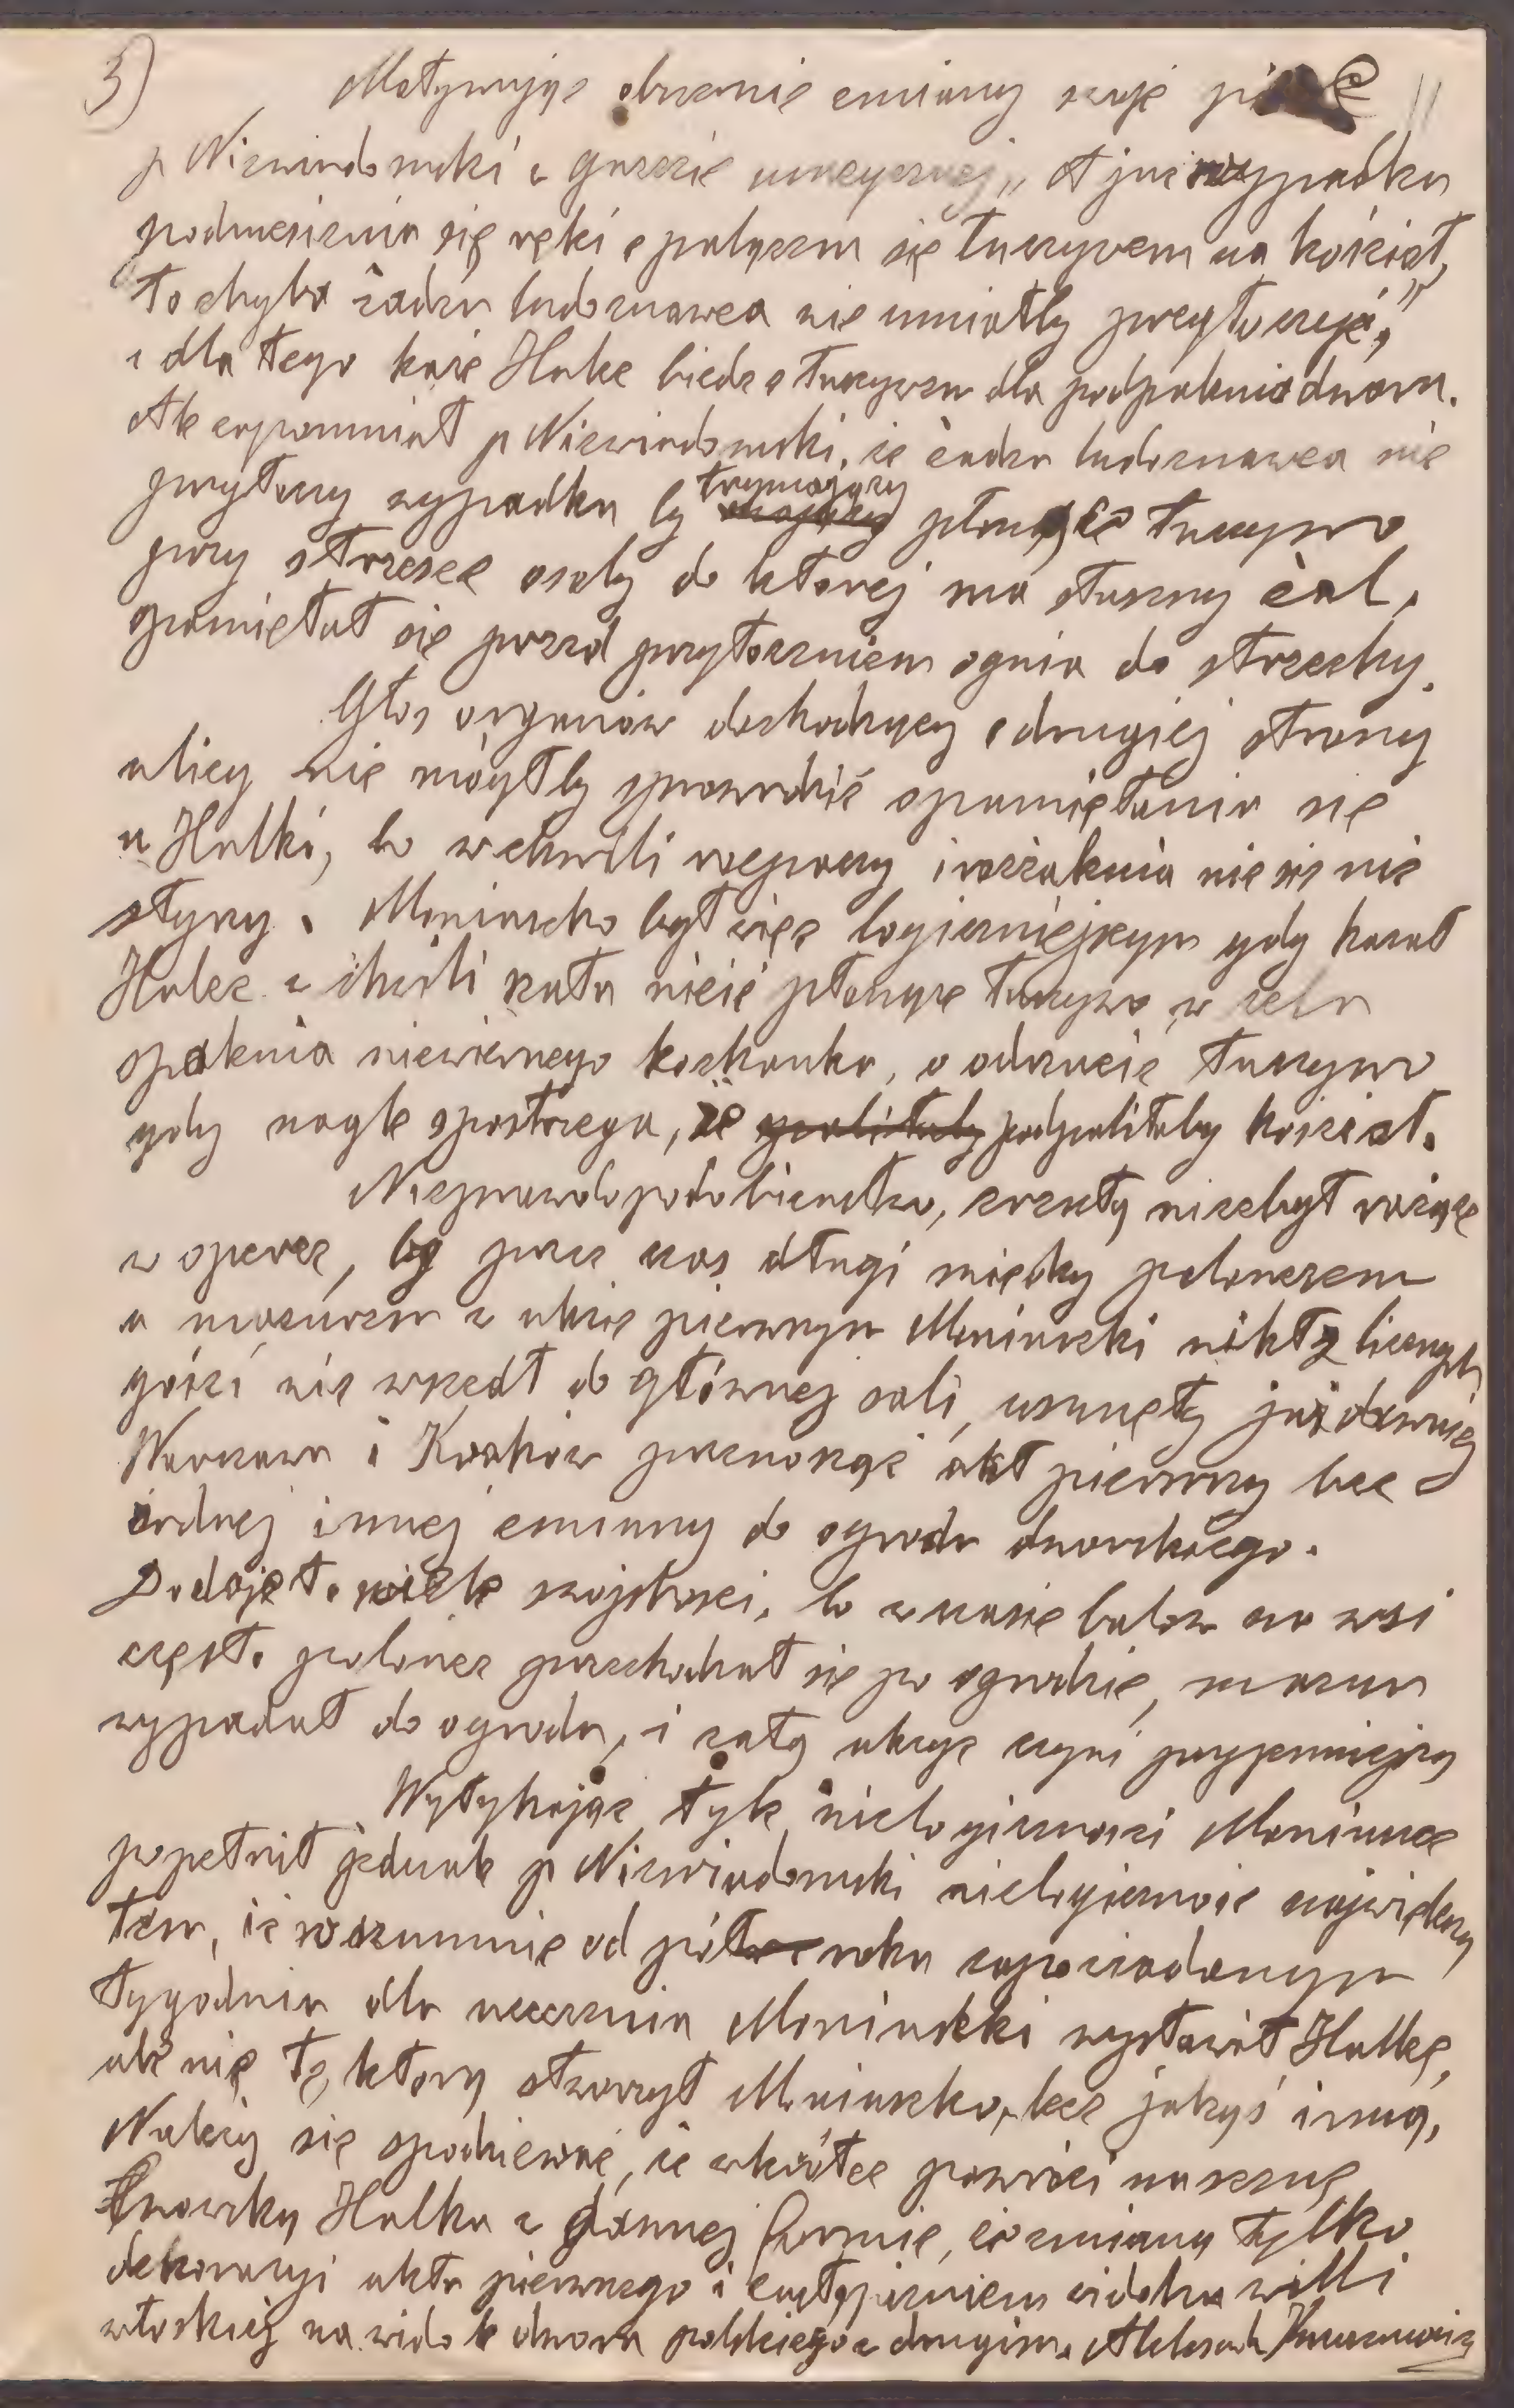 3)
Motywując obecnie zmiany swoje pisze
p Niewiadomski w gazecie muzycznej „A już wypadku
podniesienia się ręki z palącem się łuczywem na kościół,
to chyba żaden ludoznawca nie umiałby przytoczyć,"
i dla tego każe Halce biedz z łuczywem dla podpalenia dworu.
Ale zapomniał p Niewiadomski, że żaden ludoznawca nie
przytoczy wypadku by trzymający płonące łuczywo
przy strzesze osoby do której ma słuszny żal,
opamiętał się przed przytoczeniem ognia do strzechy.
Głos organów dochodzący z drugiej strony
ulicy nie mógłby sprowadzić opamiętania się
u Halki, bo w chwili rozpaczy i wzżalenia nic się nie
słyszy. Moniuszko był więc logiczniejszym gdy kazał
Halce w chwili szału nieść płonące łuczywo w celu
spalenia niewiernego kochanka, a odrzucić łuczywo
gdy nagle spostrzega, że spaliłaby podpaliłaby kościół.
Nieprawdopodobieństwo, zresztą niezbyt rażące
w operze, by przez czas długi między polonezem
a mazurem w akcie pierwszym Moniuszki nikt z licznych
gości nie wszedł do głównej sali, usunęły już dawniej
Warszawa i Kraków przenosząc akt pierwszy bez
żadnej innej zmiany do ogrodu dworskiego.
Dodaje to wiele swojskości, bo w czasie balów na wsi
często polonez przechadzał się po ogrodzie, mazur
wypadał do ogrodu, i całą akcyę czyni przyjemniejszą
Wytykając tyle nielogiczności Moniuszce
popełnił jednak p Niewiadomski nielogiczność największą
tem, iż w szumnie od pół roku zapowiadanym
tygodniu dla uczczenia Moniuszki wystawił Halkę,
ale nie tę, którą stworzył Moniuszko, lecz jakąś inną,
Należy się spodziewać, że wkrótce powróci na scenę
lwowską Halka w dawnej formie, ze zmianą tylko
dekoracyi aktu pierwszego i zastąpieniem widoku willi
włoskiej na widok dworu polskiego w drugim. Aleksander